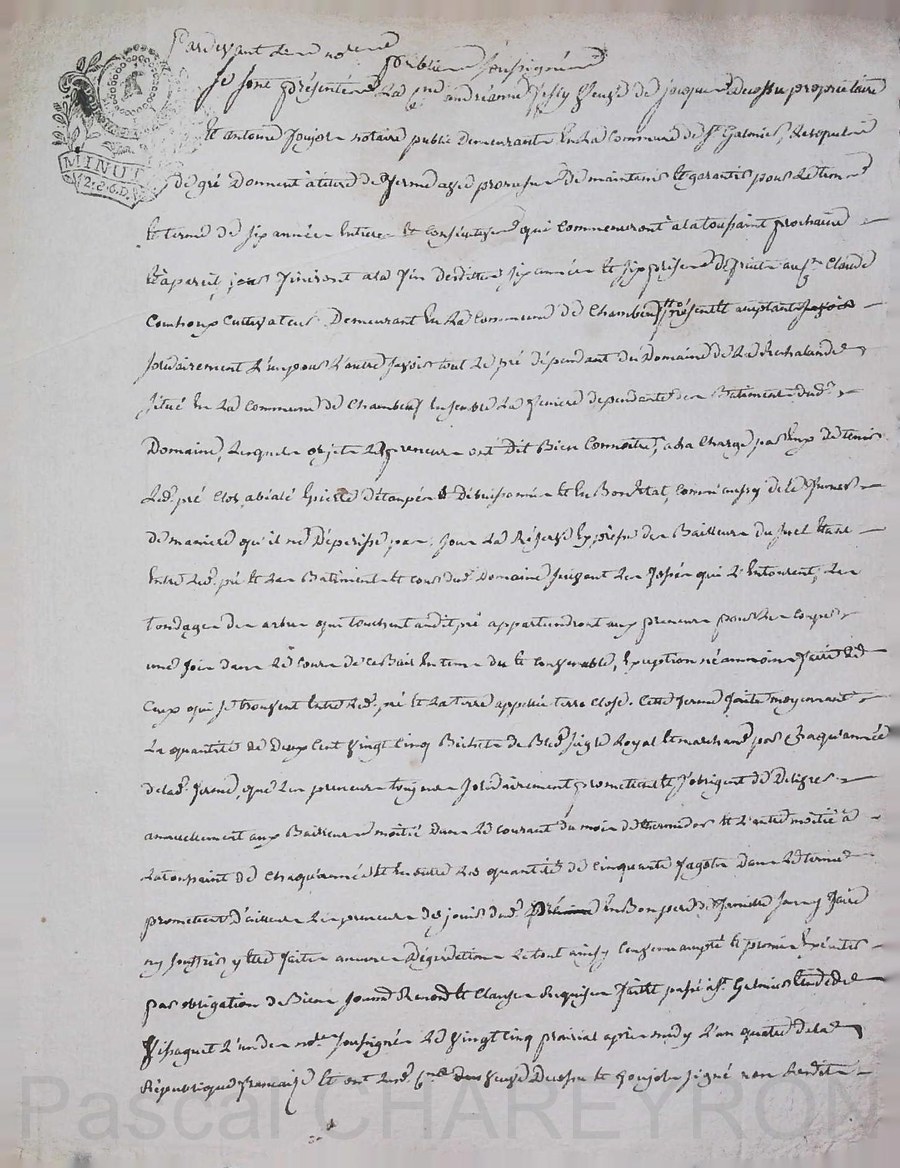 Pardevant les no.res
publics soussignés
se sont présentés La C.ne andréanne veuve de jacques Ducossu propriétaire
Et antoine Goujol notaire public Demeurants En La Commune de S.t Galmier, Lesquels
de gré Donnent à titre de ferme avec promesse De maintenir Et garantir pour Le tems
Et terme de six années Entieres Et Consécutives qui Commenceront a la toussaint prochaine
Et à pareil jour finiront a la fin desdittes six années Et six prises de fruits au C.en Claude
Cultivateur Demeurant En La Commune de Chambeuf présent Et acceptant
solidairement L'un pour L'autre savoir tout Le pré dépendant du Domaine de La
situé En La Commune de Chambeuf Ensemble La feniere dependante des Batiments dud.t
Domaine, Lesquels objets Les preneurs ont Dit Bien Connoitre, a la Charge par Eux de tenir
Led.t pré Clos, Epierré Détaupé Débuissonné Et En Bon Etat,
de maniere qu'il ne Déperisse pas, sous La Réserve Expresse des Bailleurs du
Entre Led.t pré Et Les Batiments Et cour dud.t Domaine suivant Les fossés qui L'Entourent, Les
tondages des arbres qui touchent audit pré appartiendront aux preneurs pour Les Couper
une fois dans Le Cours de ce Bail En tems du Et Convenable, Exception néanmoins faite de
Ceux qui se trouvent Entre Led.t pré Et La terre appellée terre close. Cette ferme faite moyennant
La quantité de Deux Cent vingt Cinq Bichets de Bled seigle Royal Et marchand par Chaqu'année
de lad.e ferme, que Les preneurs toujours solidairement promettent Et s'obligent de Délivrer
annuellement aux Bailleurs moitié dans Le courant du mois de thermidor Et L'autre moitié à
La toussaint de Chaqu'année Et En outre La quantité de Cinquante fagots Dans Le terme
promettent D'ailleurs Les preneurs de jouir dud.t En Bon pere de famille sans y faire
ny souffrir y Etre faites aucunes Dégradations Le tout ainsy Convenu accepté Et promis Exécuter
par obligation de Biens soumis Renonc.t Et Clauses Requises fait Et passé à S.t Galmier Etude de
Pissaguet L'un des no.res soussignés Le vingt Cinq prairial après midy L'an quatre de la
République française Et ont Lesd. C.ne veuve Ducossu Et Goujol signé non Lesdits
MINUT
Pascal CHAREYRON